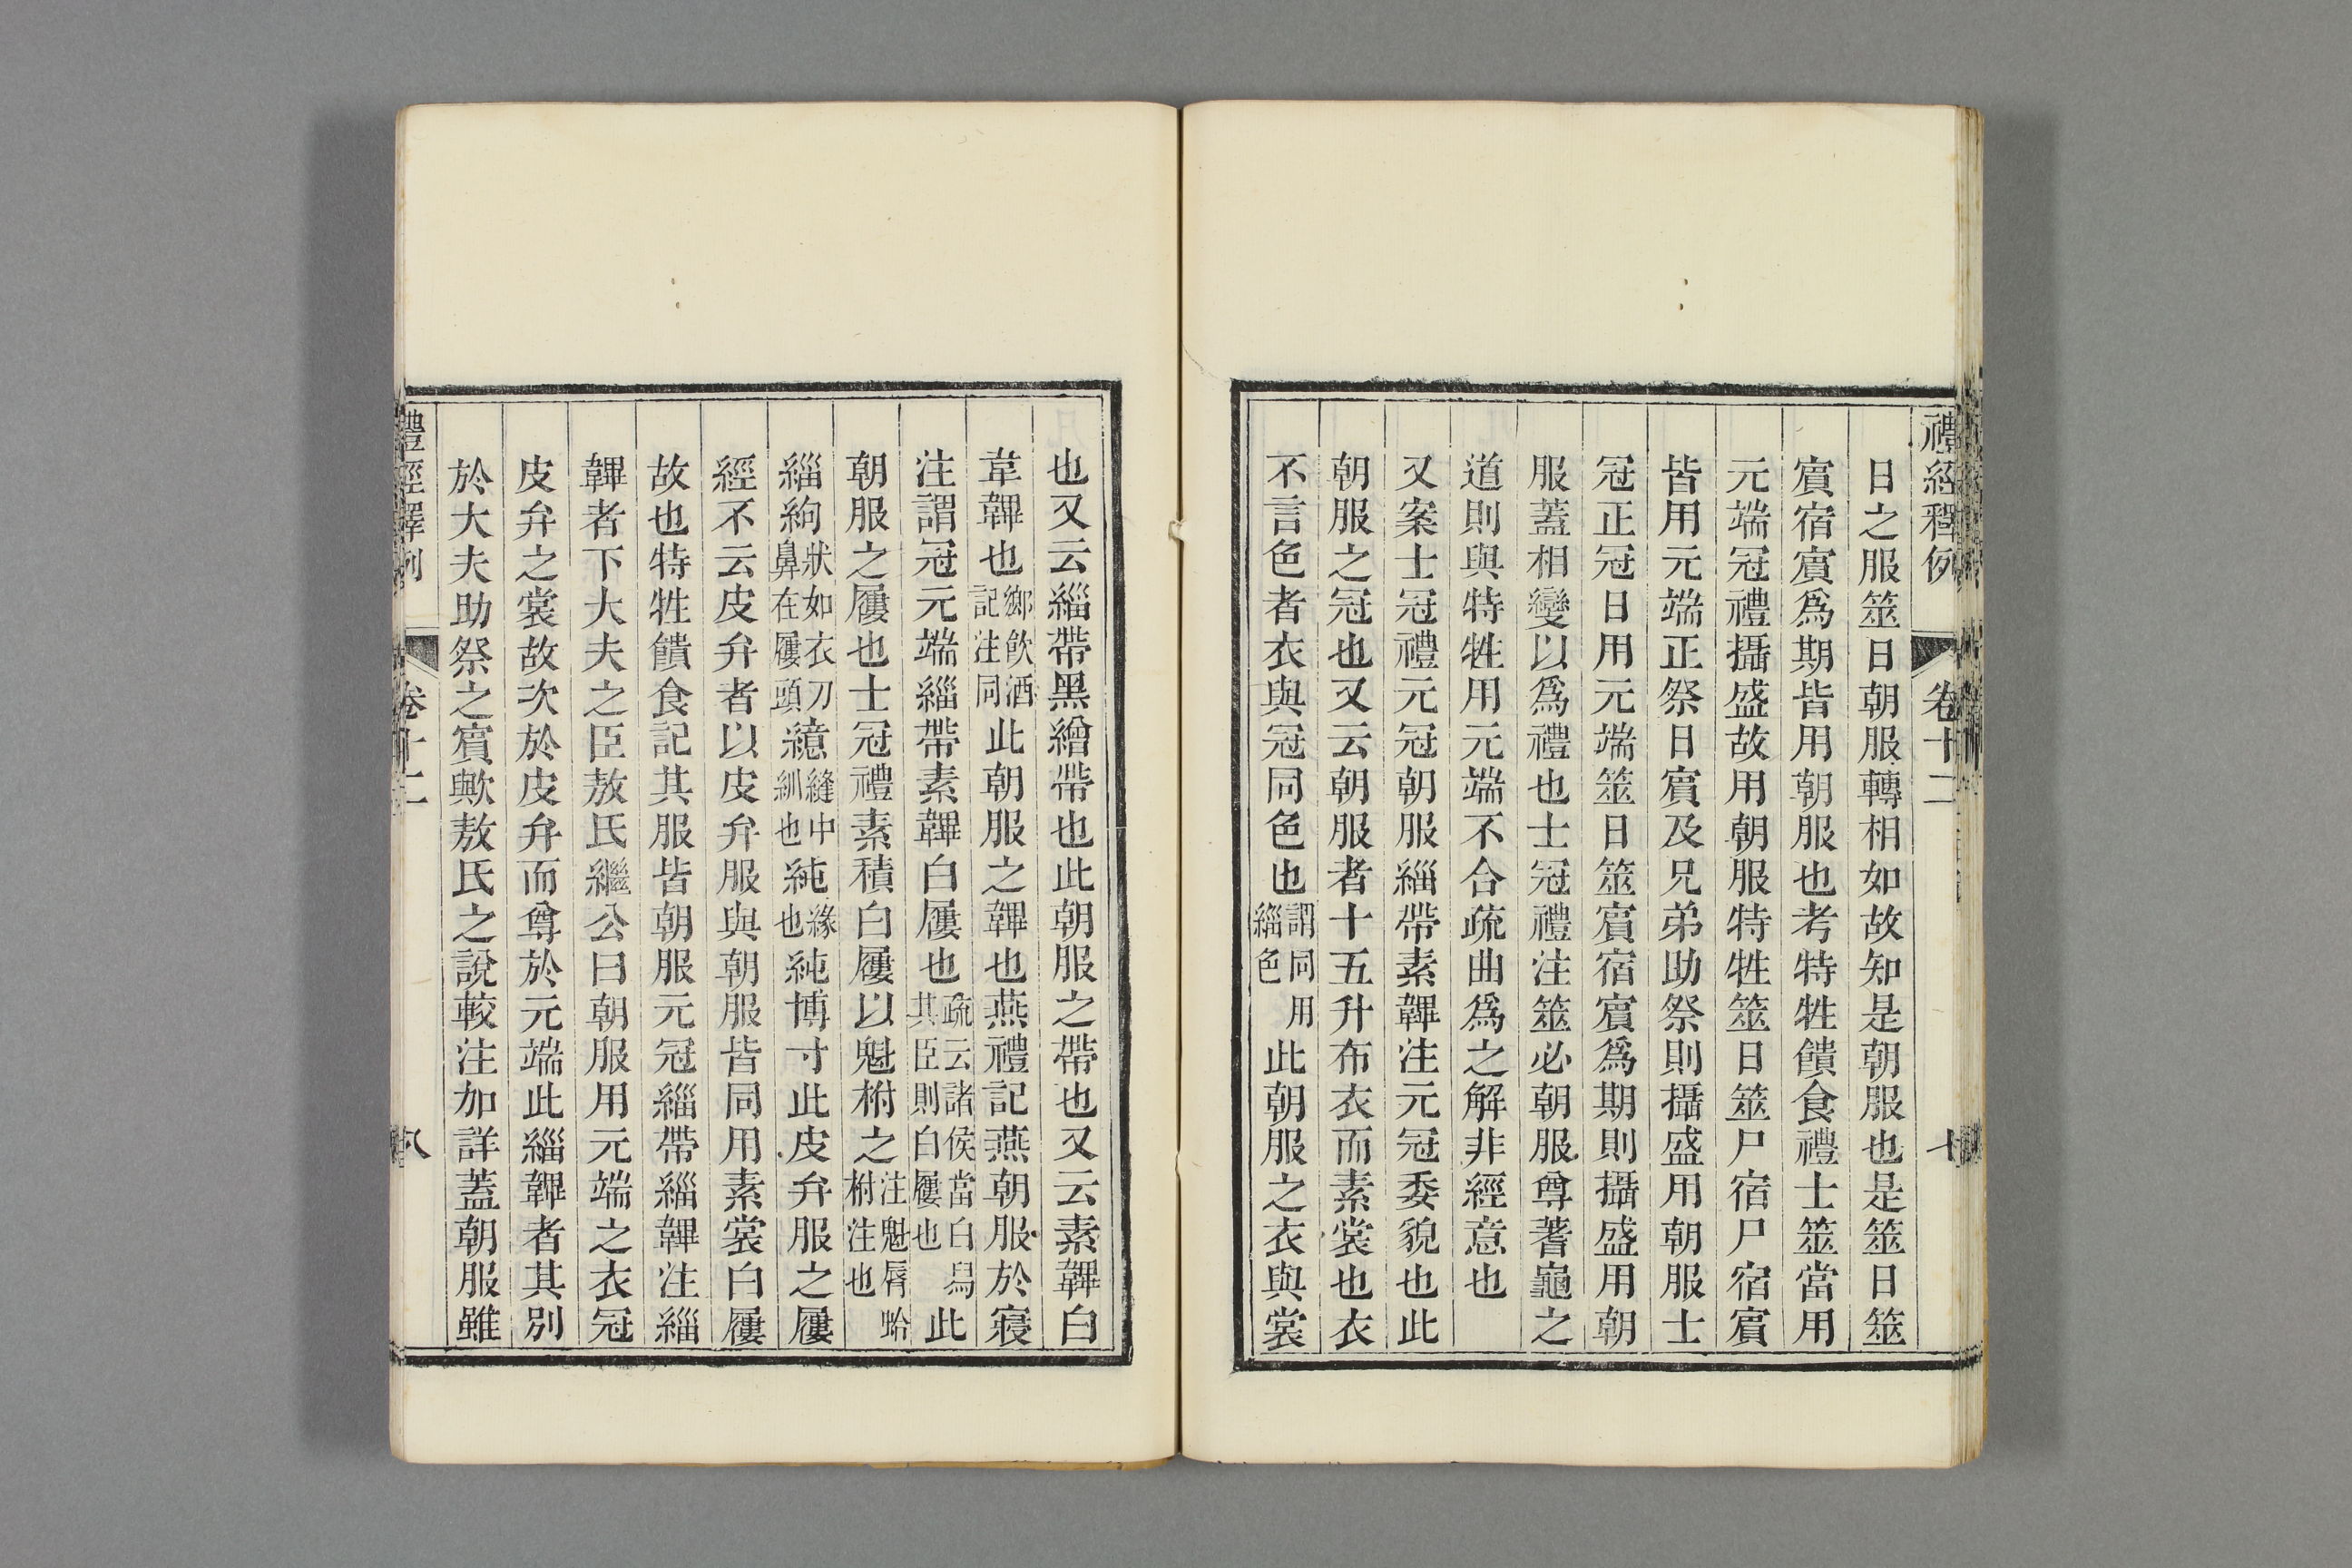 禮經釋例 卷十二 七
日之服筮日朝服轉相如故知是朝服也是筮日筮
賔宿賔爲期皆用朝服也考特牲饋食禮士筮當用
元端冠禮攝盛故用朝服特牲筮日筮尸宿尸宿賔
皆用元端正祭日賔及兄弟助祭則攝盛用朝服士
冠正冠日用元端筮日筮賔宿賔爲期則攝盛用朝
服蓋相變以爲禮也士冠禮注筮必朝服尊蓍龜之
道則與特牲用元端不合疏曲爲之解非經意也
又案士冠禮元冠朝服緇帶素韠注元冠委貌也此
朝服之冠也又云朝服者十五升布衣而素裳也衣
不言色者衣與冠同色也謂同用緇色此朝服之衣與裳
也又云緇帶黑繒帶也此朝服之帶也又云素韠白
韋韠也鄉飲酒記注同此朝服之韠也燕禮記燕朝服於寢
注謂冠元端緇帶素韠白屨也疏云諸侯當白舄其臣則白屨也此
朝服之屨也士冠禮素積白屨以魁柎之注魁蜃蛤柎注也
緇絇狀如衣刀鼻在屨頭繶縫中紃也純緣也純博寸此皮弁服之屨
經不云皮弁者以皮弁服與朝服皆同用素裳白屨
故也特牲饋食記其服皆朝服元冠緇帶緇韠注緇
韠者下大夫之臣敖氏繼公曰朝服用元端之衣冠
皮弁之裳故次於皮弁而尊於元端此緇韠者其別
於大夫助祭之賔歟敖氏之說較注加詳蓋朝服雖
禮經釋例 卷十二 八